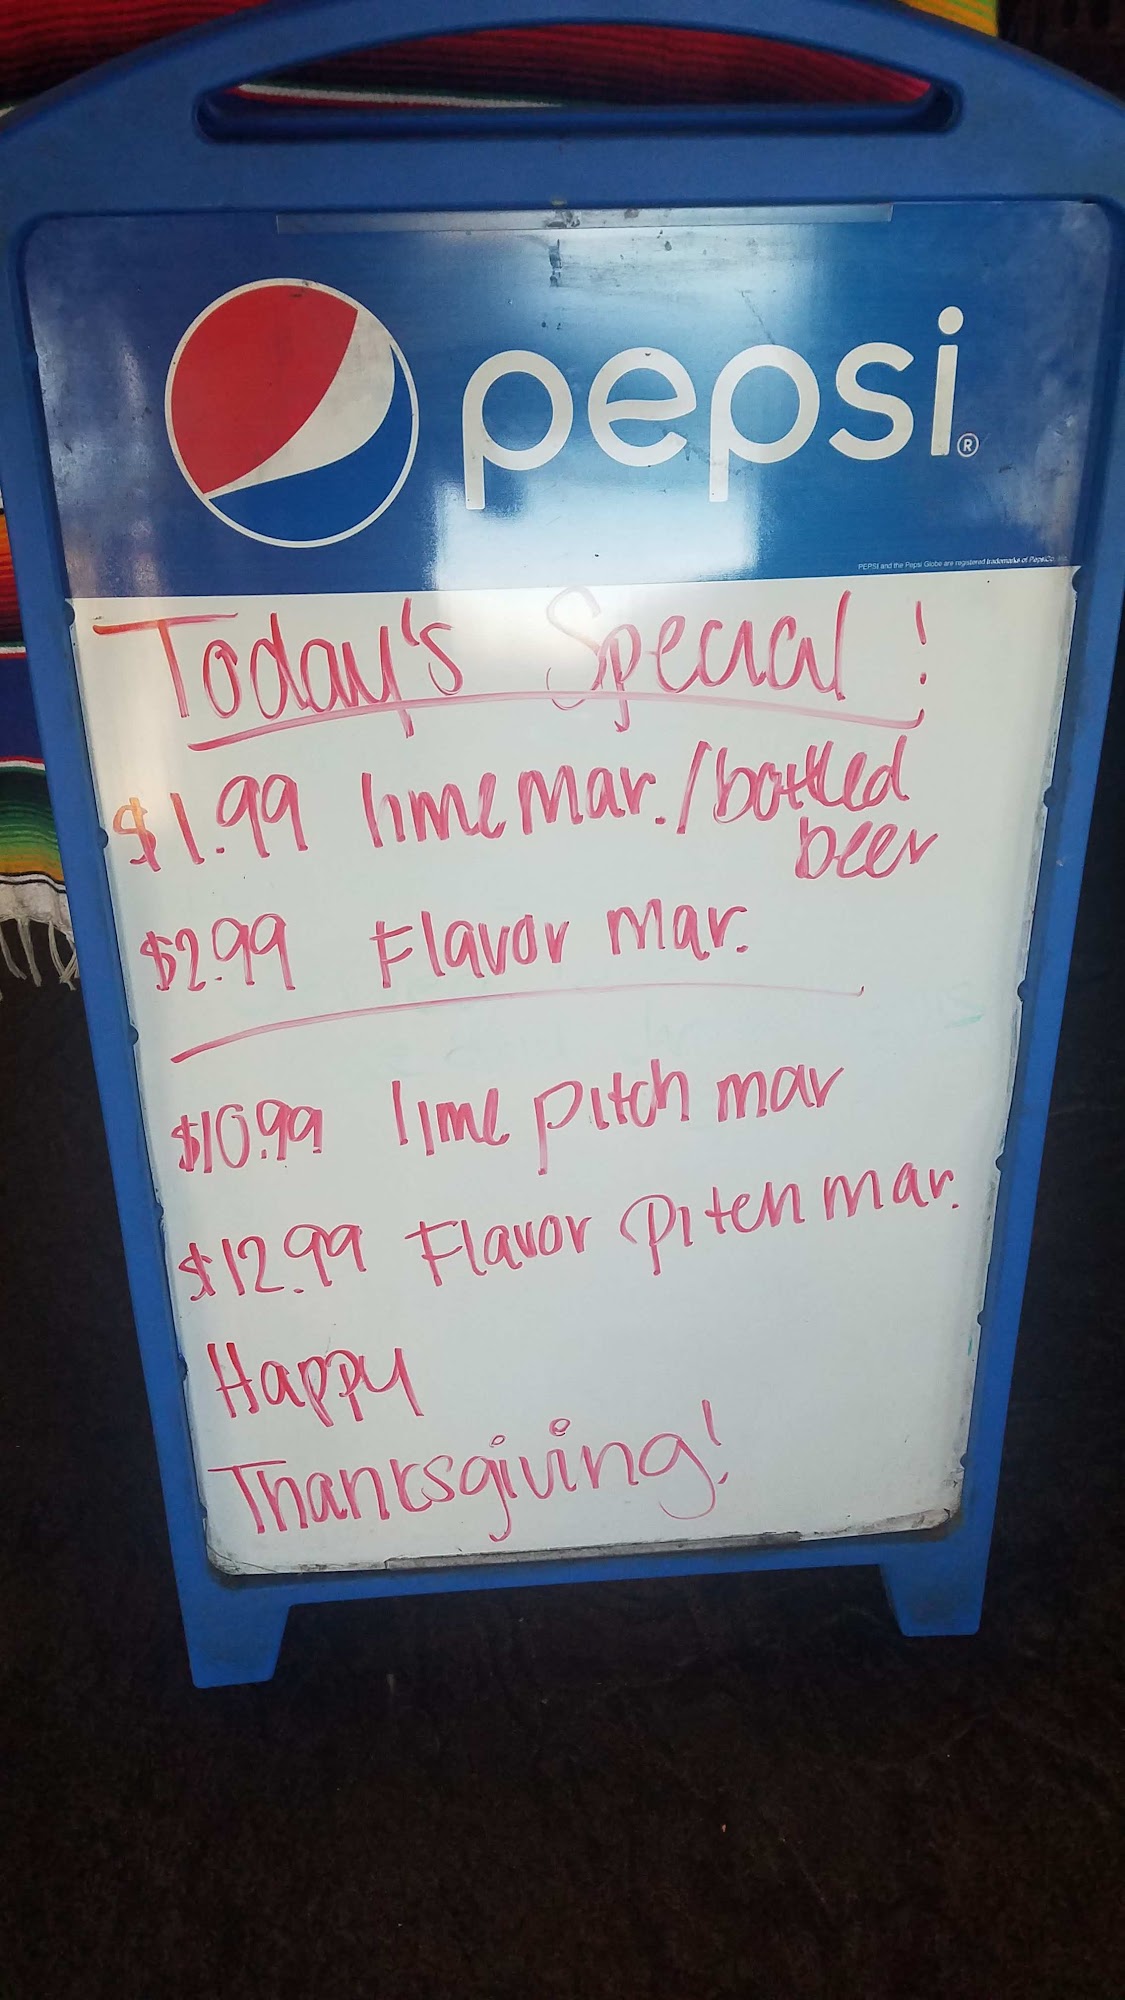 pepsi®
PEPSI and the Pepsi Globe are registered trademarks of PepsiCo, Inc.
Today's Special!
$1.99 lime mar./bottled
beer
$2.99 Flavor mar.
$10.99 lime pitch mar
$12.99 Flavor Pitch mar.
Happy
Thanksgiving!